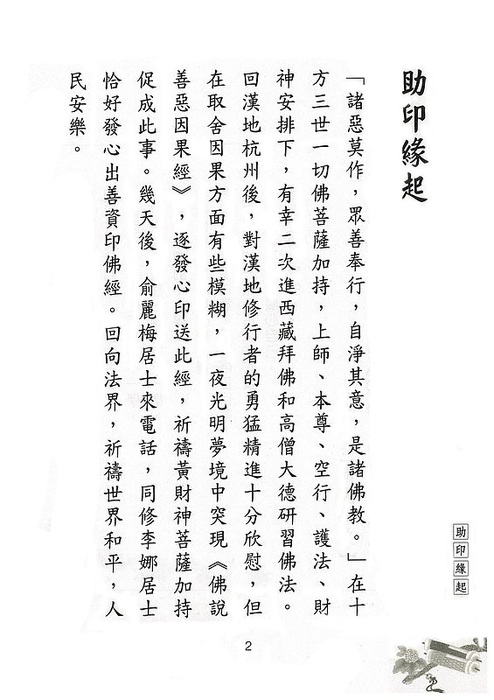 助印緣起
「諸惡莫作，眾善奉行，自淨其意，是諸佛教。」在十
方三世一切佛菩薩加持，上師、本尊、空行、護法、財
神安排下，有幸二次進西藏拜佛和高僧大德研習佛法。
回漢地杭州後，對漢地修行者的勇猛精進十分欣慰，但
在取舍因果方面有些模糊，一夜光明夢境中突現《佛說
善惡因果經》，逐發心印送此經，祈禱黃財神菩薩加持
促成此事。幾天後，俞麗梅居士來電話，同修李娜居士
恰好發心出善資印佛經。回向法界，祈禱世界和平，人
民安樂。
助印緣起
2